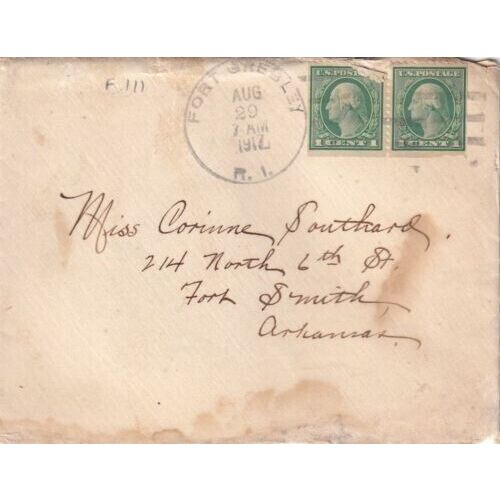 F.111
FORT GREBLEY
AUG
29
7 AM
1917
R. I.
U.S. POSTAGE
1 CENT 1
U.S. POSTAGE
1 CENT 1
Miss Corinne Southard.
214 North 6th St.
Fort Smith,
Arkansas.